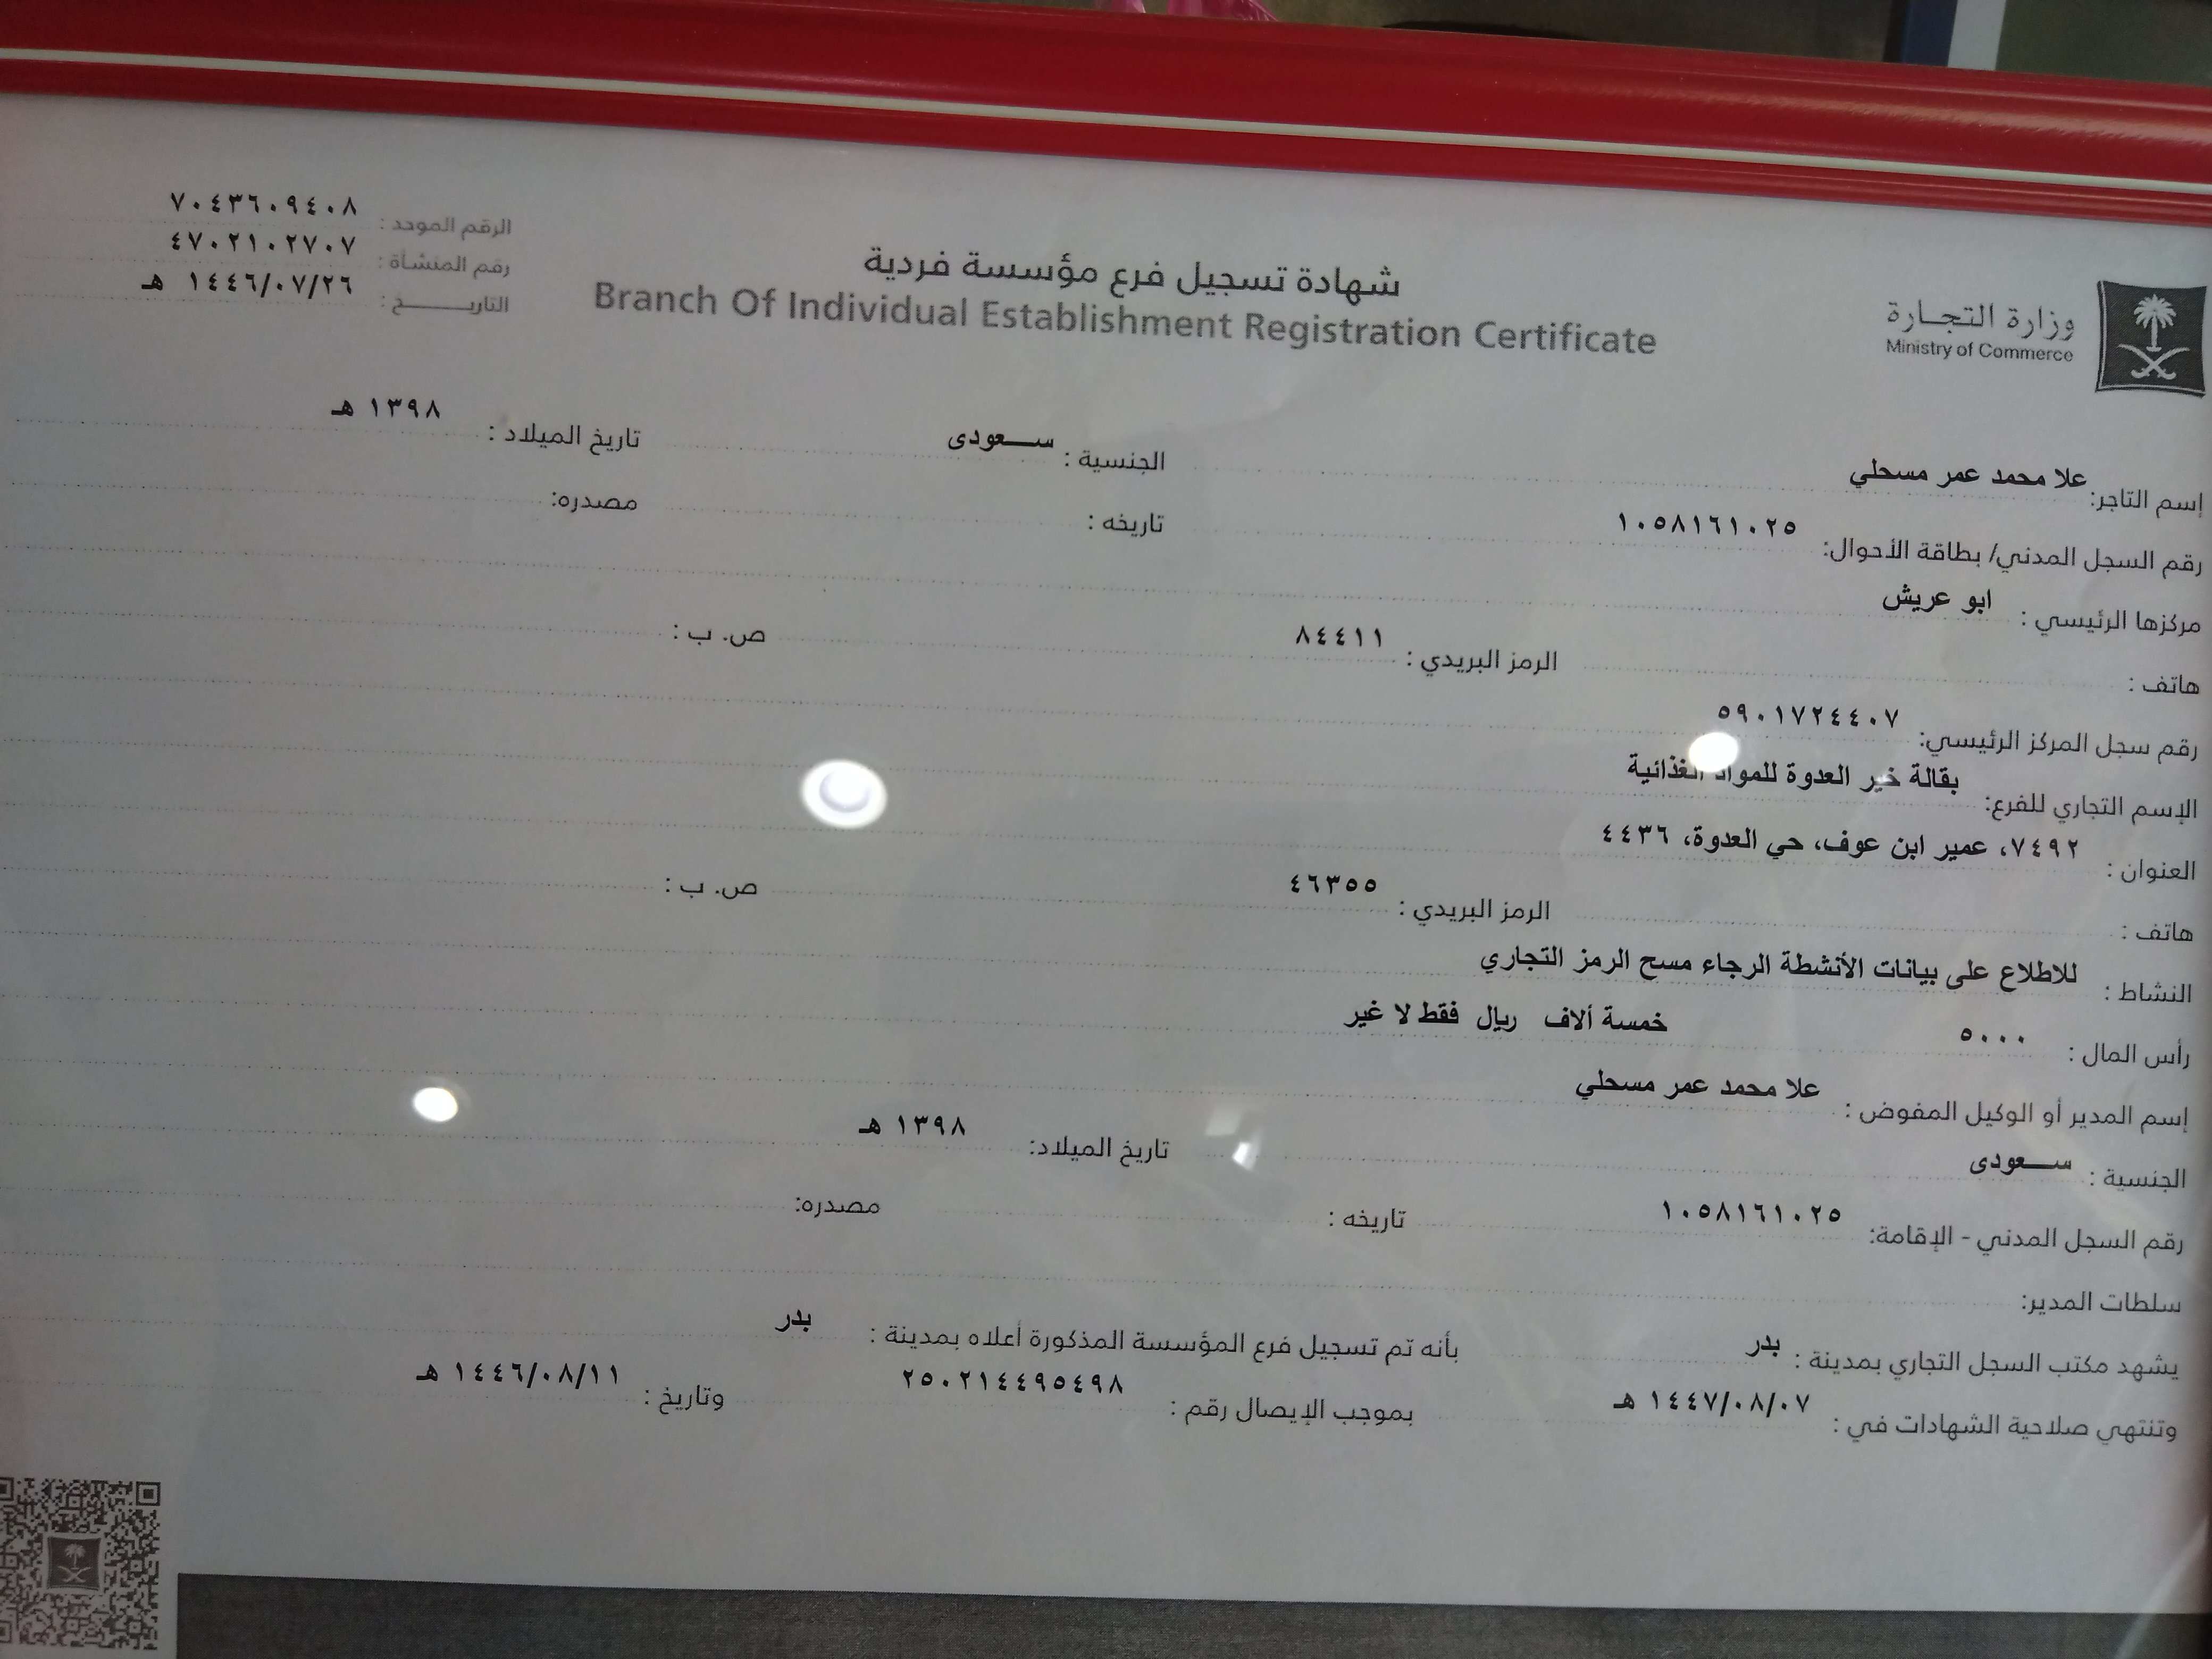 وزارة التجـارة
Ministry of Commerce
شهادة تسجيل فرع مؤسسة فردية
Branch Of Individual Establishment Registration Certificate
الرقم الموحد : ٧٠٤٣٦٠٩٤٠٨
رقم المنشأة : ٤٧٠٢١٠٢٧٠٧
التاريـــــخ : ١٤٤٦/٠٧/٢٦ هـ
إسم التاجر: علا محمد عمر مسحلي الجنسية : ســـعودى تاريخ الميلاد : ١٣٩٨ هـ
رقم السجل المدني/ بطاقة الأحوال: ١٠٥٨١٦١٠٢٥ تاريخه : مصدره:
مركزها الرئيسي : ابو عريش
هاتف : الرمز البريدي : ٨٤٤١١ ص. ب :
رقم سجل المركز الرئيسي: ٥٩٠١٧٢٤٤٠٧
الإسم التجاري للفرع: بقالة خير العدوة للمواد الغذائية
العنوان : ٧٤٩٢، عمير ابن عوف، حي العدوة، ٤٤٣٦
هاتف : الرمز البريدي : ٤٦٣٥٥ ص. ب :
النشاط : للاطلاع على بيانات الأنشطة الرجاء مسح الرمز التجاري
رأس المال : ٥٠٠٠ خمسة ألاف ريال فقط لا غير
إسم المدير أو الوكيل المفوض : علا محمد عمر مسحلي
الجنسية : ســـعودى تاريخ الميلاد: ١٣٩٨ هـ
رقم السجل المدني - الإقامة: ١٠٥٨١٦١٠٢٥ تاريخه : مصدره:
سلطات المدير:
يشهد مكتب السجل التجاري بمدينة : بدر بأنه تم تسجيل فرع المؤسسة المذكورة أعلاه بمدينة : بدر
وتنتهي صلاحية الشهادات في : ١٤٤٧/٠٨/٠٧ هـ بموجب الإيصال رقم : ٢٥٠٢١٤٤٩٥٤٩٨ وتاريخ : ١٤٤٦/٠٨/١١ هـ